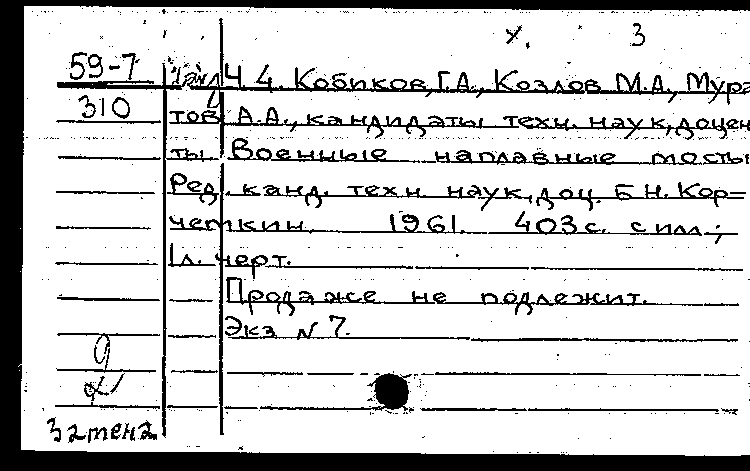 х. 3
59-7 Ч 4. Кобиков, Г.А., Козлов М.А., Мура
310 тов А.А., кандидаты техн. наук, доцен
ты. Военные наплавные мосты
Ред. канд. техн. наук, доц. Б Н. Кор=
чемкин. 1961. 403 с. с илл.;
1л. черт.
Продаже не подлежит.
Экз N 7.